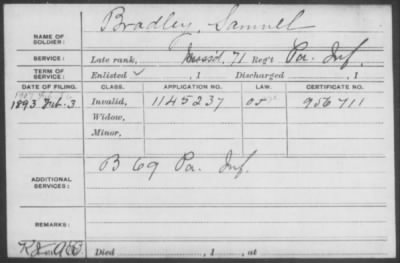 Bradley, Samuel
NAME OF SOLDIER:
SERVICE: Late rank, 71 Reg't Pa. Inf.
TERM OF SERVICE: Enlisted ✓, 1 Discharged , 1
DATE OF FILING. CLASS. APPLICATION NO. LAW. CERTIFICATE NO.
1893 Feb. 3 Invalid, 1145237 956711
Widow,
Minor,
ADDITIONAL SERVICES: B 69 Pa. Inf.
REMARKS:
Died , 1 , at